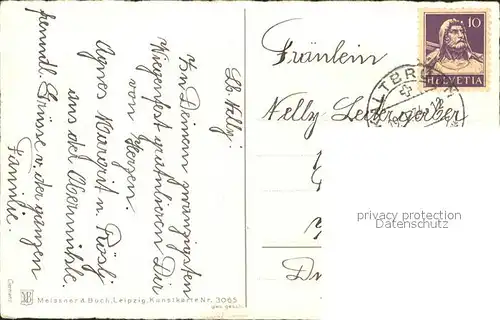 Lb. Nelly!
Zu Deinem zwanzigsten
Wiegenfest gratulieren Dir
von Herzen.
Agnes Margrit u. Rösly
aus der Obermühle.
freundl. Grüsse v. der ganzen
Familie.
Fräulein
Nelly
10
HELVETIA
privacy protection
Datenschutz
Meissner & Buch, Leipzig, Kunstkarte Nr. 3065